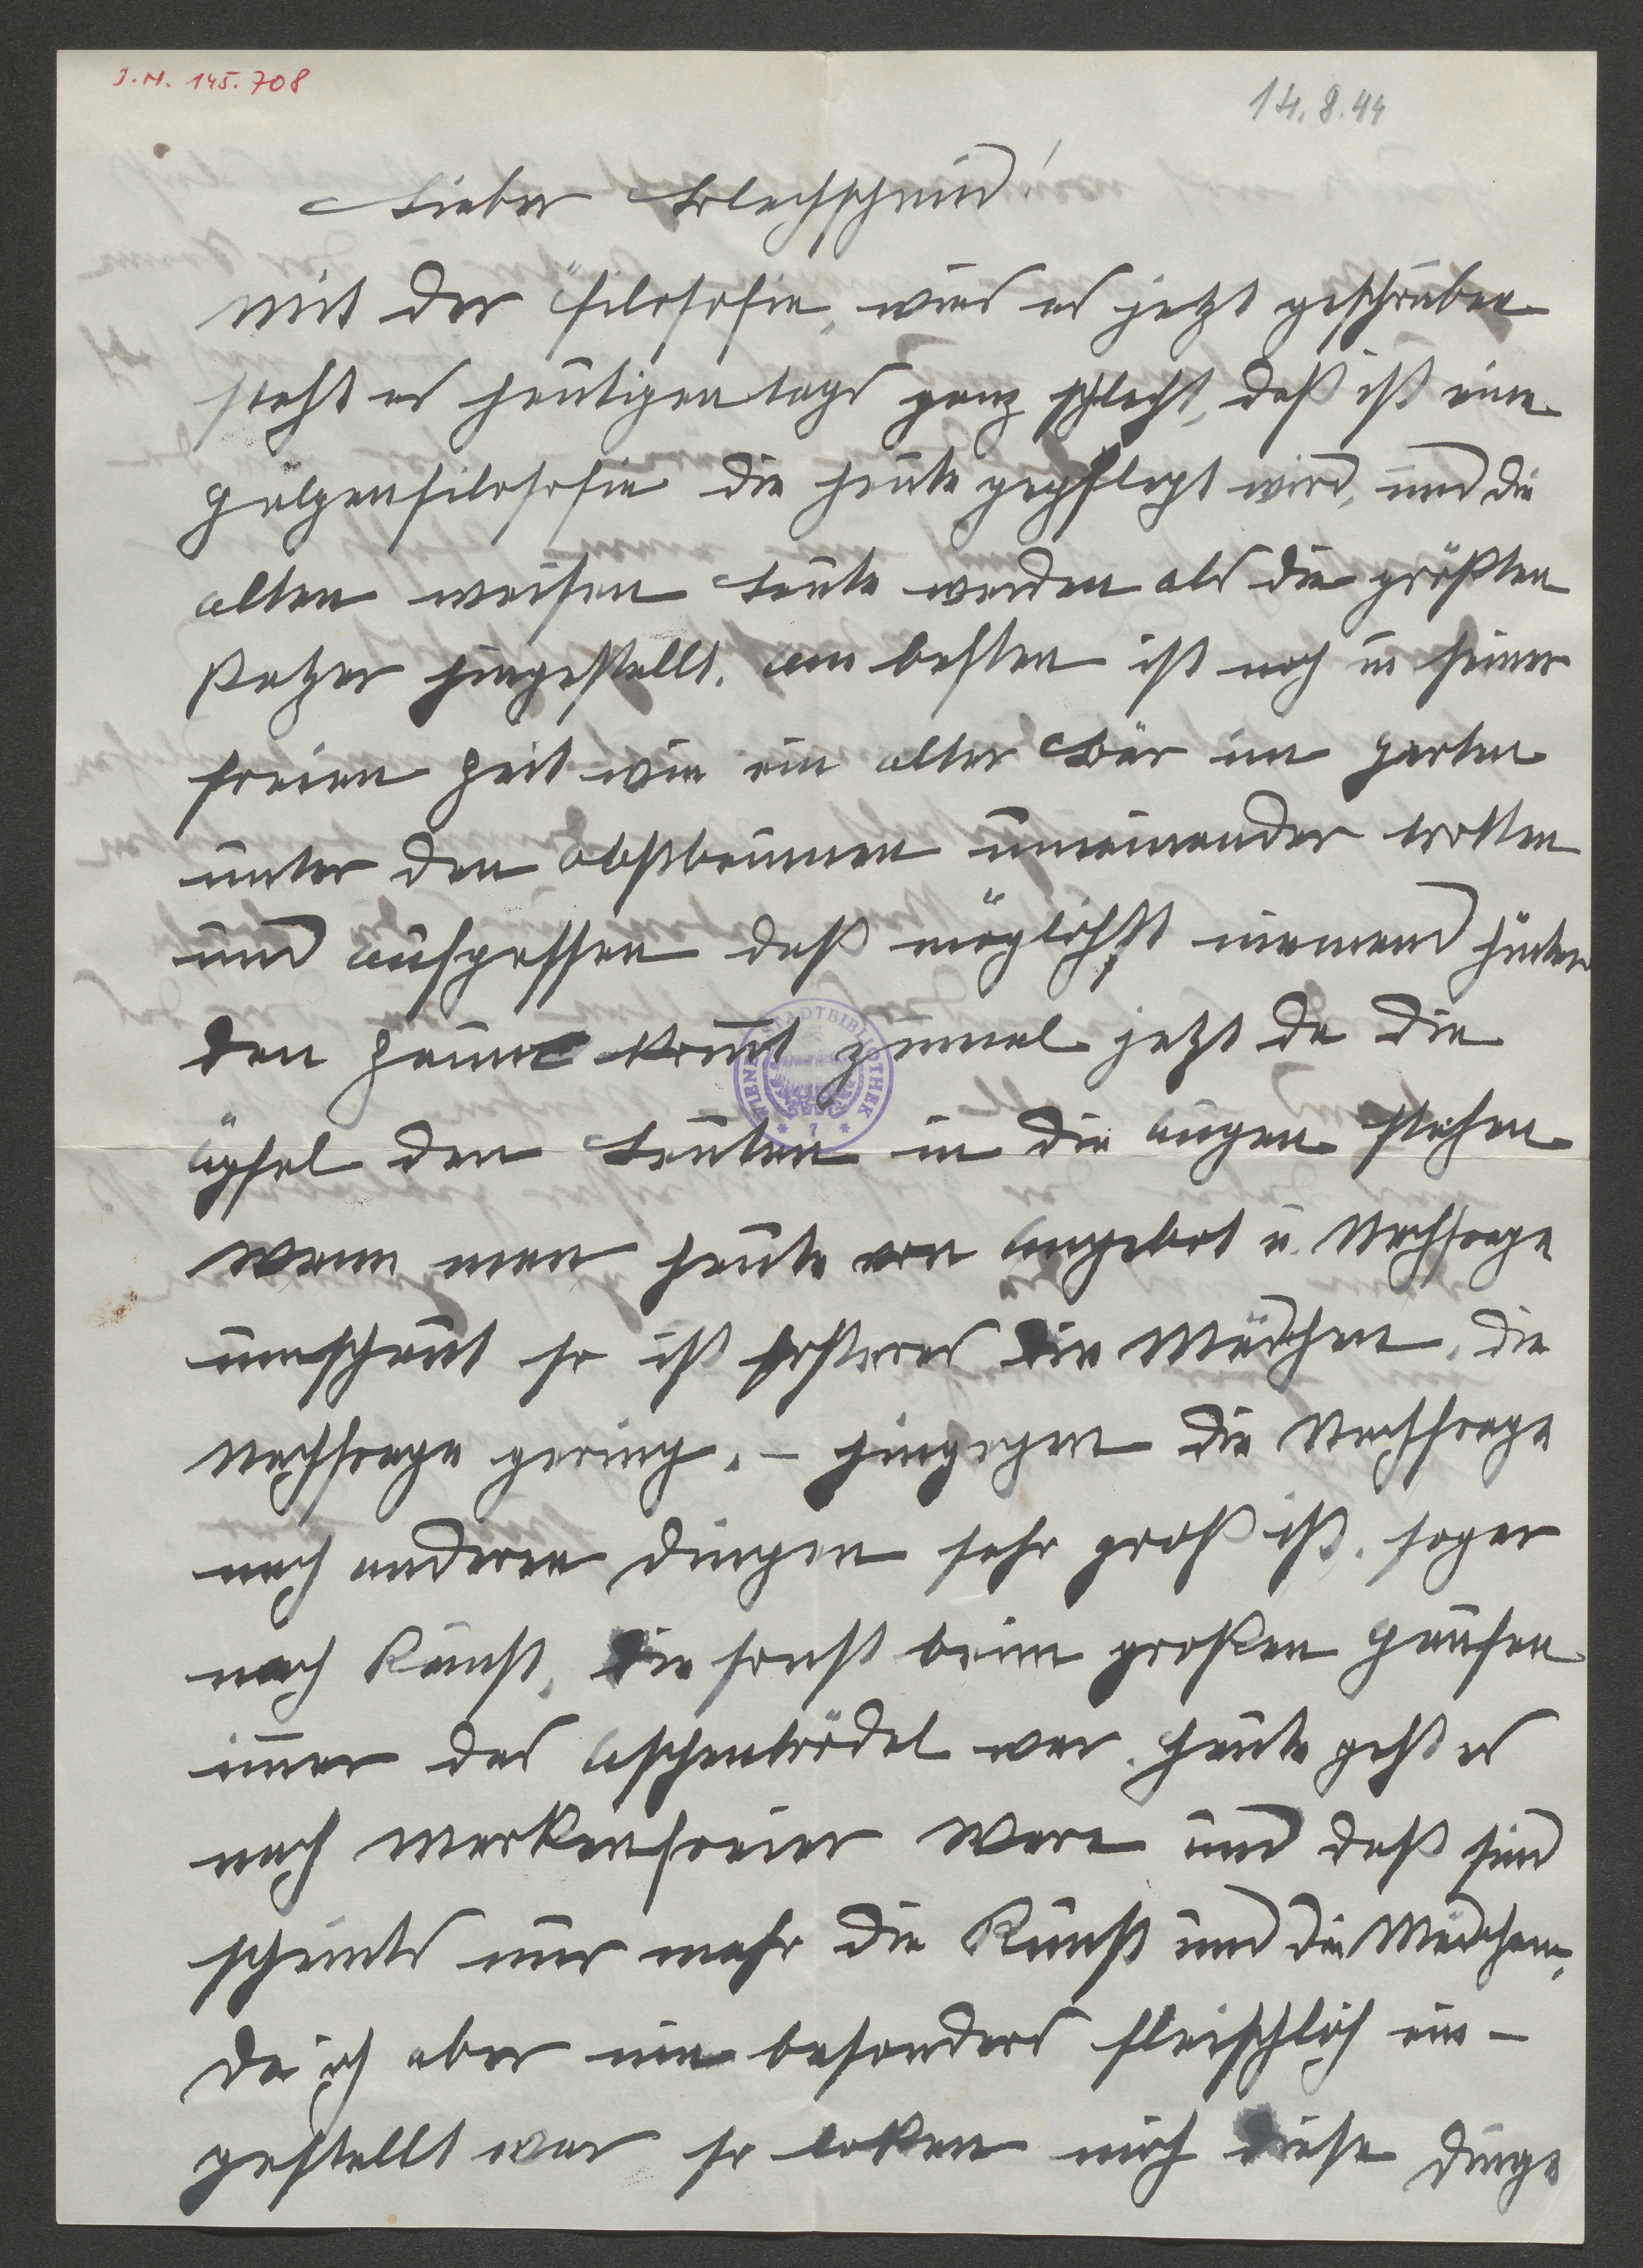 J.N. 145.708
14.8.44
Lieber Blechschmid!
mit der „filosofie, wies es jetzt geschrieben
steht es heutigentags ganz schlecht, daß ist eine
Holzenfilosofie die heute gepflegt wird, und die
alten weisen Leute werden als die größten
Patzer hingestellt. am besten ist noch in seiner
freien Zeit wie ein alter Bär im garten
unter den obstbäumen umeinander trotten
und aufpassen daß möglichst niemand hinter
den Zaune kommt zumal jetzt da die
äpfel den Leuten in die augen stehen
wenn man heute von angebot u. Nachfrage
umschaut so ist ersteres die Mädchen, die
Nachfrage gering. – hingegen die Nachfrage
nach anderen dingen sehr groß ist. sogar
nach Kunst, die sonst beim großen Haufen
immer das aschenbrödel war. heute geht es
nach markenfreier ware und daß sind
scheints nur mehr die Kunst und die Mädchen.
da ich aber nie besonders fleischlich ein-
gestellt war so loken mich diese dinge
WIENER STADTBIBLIOTHEK * 7 *